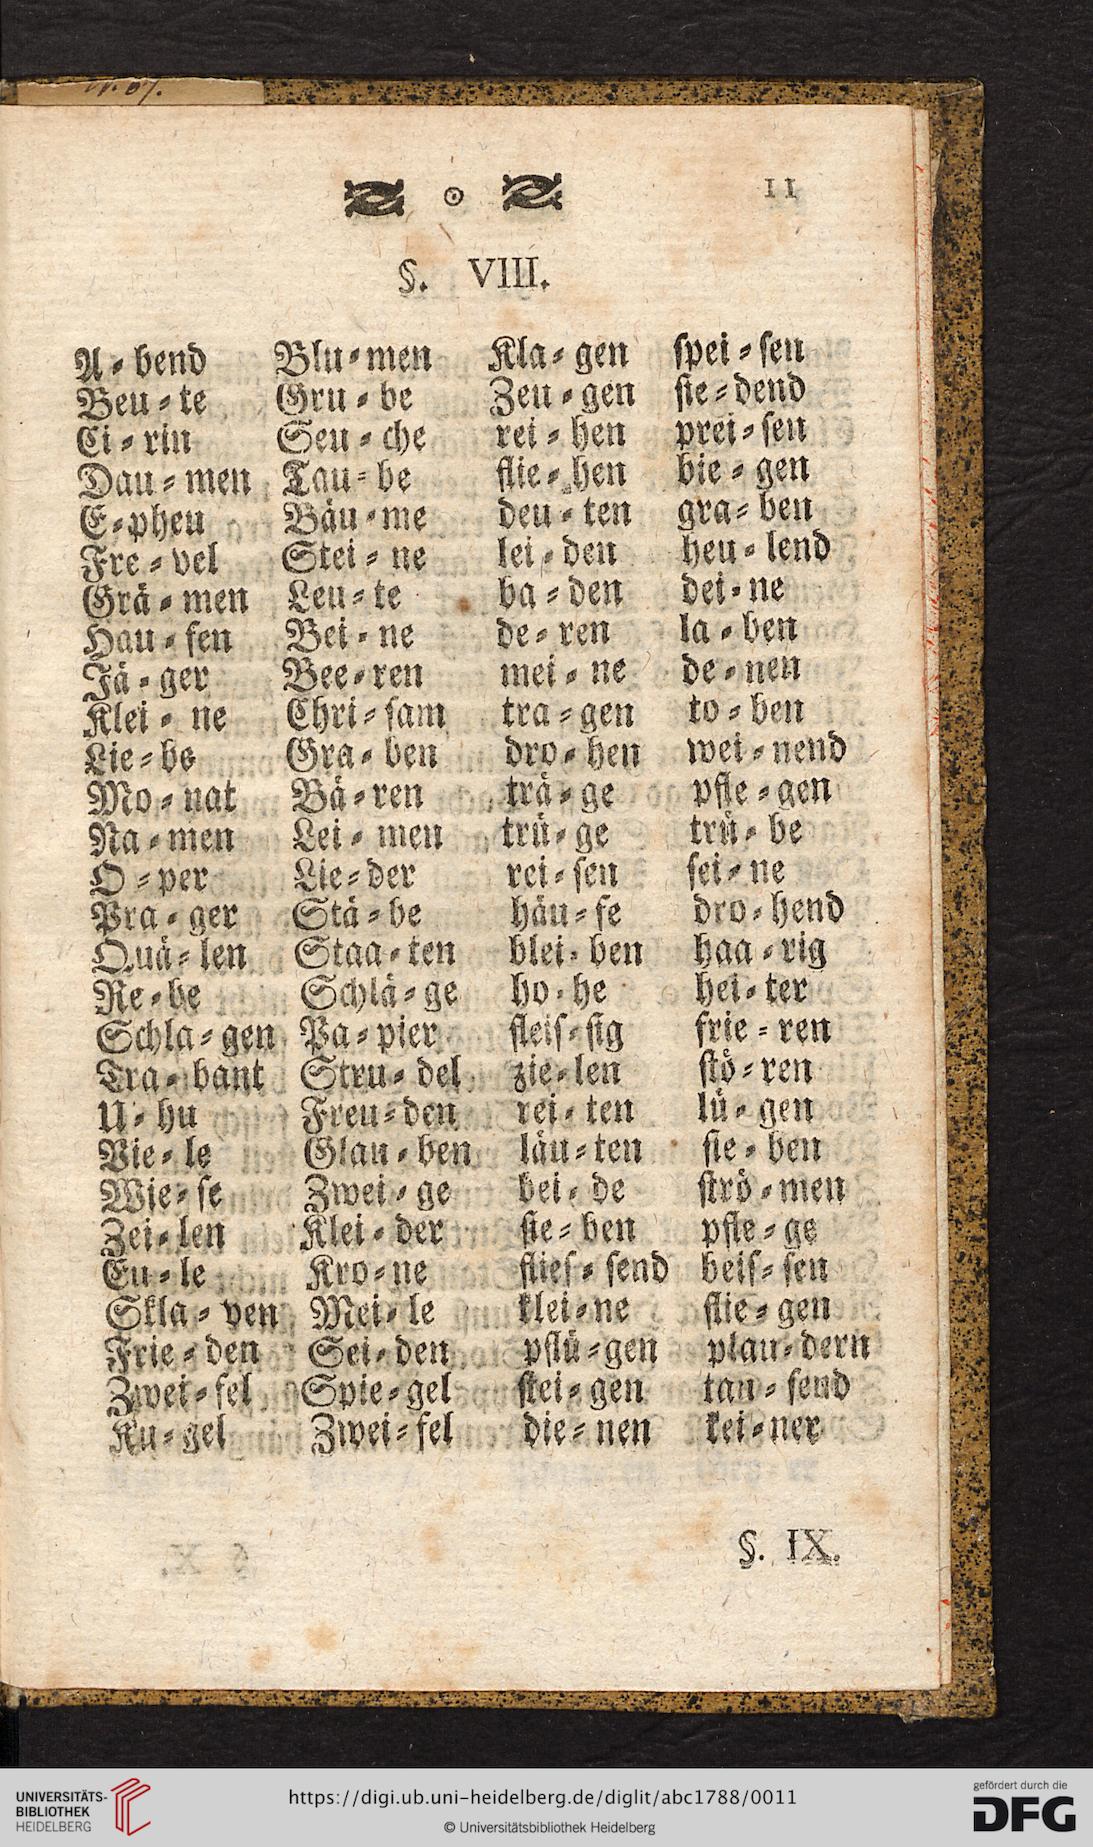 11
§. VIII.
A⸗bend Blu⸗men Kla⸗gen ſpei⸗ſen
Beu⸗te Gru⸗be Zeu⸗gen ſie⸗dend
Ci⸗rin Seu⸗che rei⸗hen prei⸗ſen
Dau⸗men Tau⸗be flie⸗hen bie⸗gen
E⸗pheu Bäu⸗me deu⸗ten gra⸗ben
Fre⸗vel Stei⸗ne lei⸗den heu⸗lend
Grä⸗men Leu⸗te ba⸗den dei⸗ne
Hau⸗fen Bei⸗ne de⸗ren la⸗ben
Jä⸗ger Bee⸗ren mei⸗ne de⸗nen
Klei⸗ne Chri⸗ſam tra⸗gen to⸗ben
Lie⸗be Gra⸗ben dro⸗hen wei⸗nend
Mo⸗nat Bä⸗ren trä⸗ge pfle⸗gen
Na⸗men Lei⸗men trü⸗ge trü⸗be
O⸗per Lie⸗der rei⸗ſen ſei⸗ne
Pra⸗ger Stä⸗be häu⸗fe dro⸗hend
Quä⸗len Staa⸗ten blei⸗ben haa⸗rig
Re⸗be Schlä⸗ge ho⸗he hei⸗ter
Schla⸗gen Pa⸗pier fleiſ⸗ſig frie⸗ren
Tra⸗bant Stru⸗del zie⸗len ſtö⸗ren
U⸗hu Freu⸗den rei⸗ten lü⸗gen
Vie⸗le Glau⸗ben läu⸗ten ſie⸗ben
Wie⸗ſe Zwei⸗ge bei⸗de ſtrö⸗men
Zei⸗len Klei⸗der ſie⸗ben pfle⸗ge
Eu⸗le Kro⸗ne flieſ⸗ſend beiſ⸗ſen
Skla⸗ven Mei⸗le klei⸗ne flie⸗gen
Frie⸗den Sei⸗den pflü⸗gen plau⸗dern
Zwei⸗fel Spie⸗gel ſtei⸗gen tau⸗ſend
Ku⸗gel Zwei⸗fel die⸗nen kei⸗ner
§. IX.
UNIVERSITÄTS-
BIBLIOTHEK
HEIDELBERG
https://digi.ub.uni-heidelberg.de/diglit/abc1788/0011
© Universitätsbibliothek Heidelberg
gefördert durch die
DFG